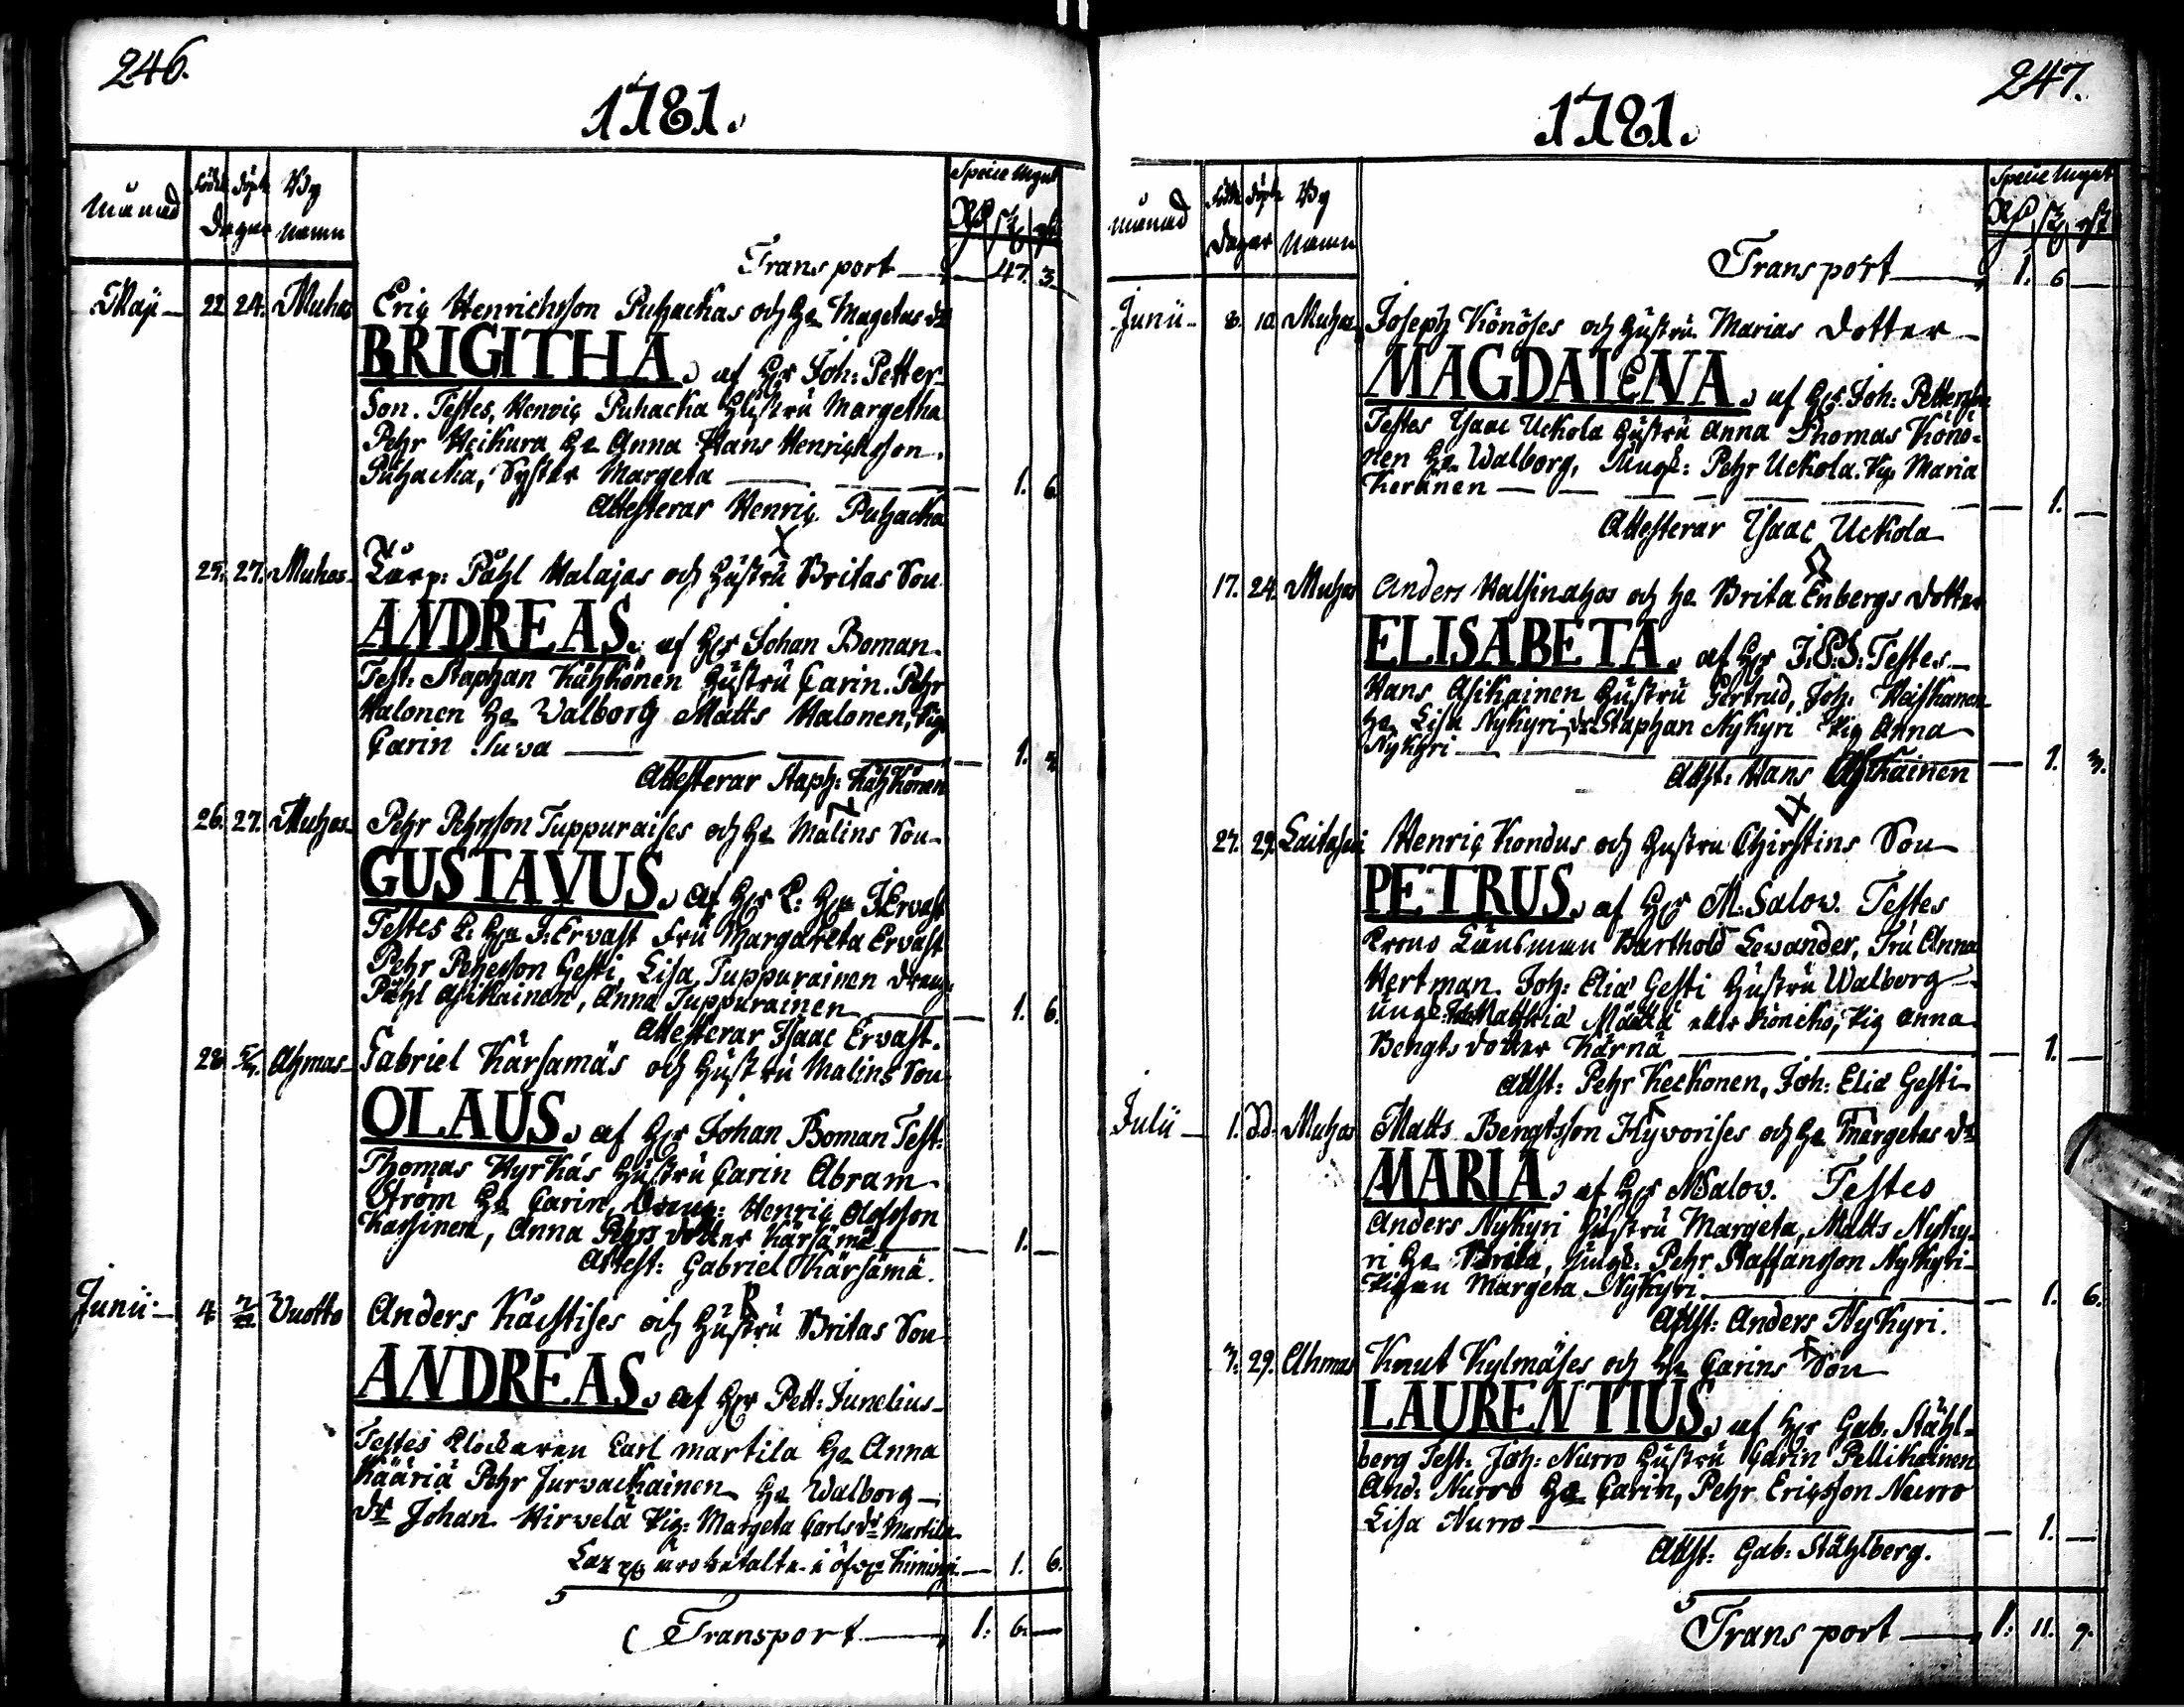 246.
1781.
Månad Född Döpt By
Dagar namn
Specie mynt
Transport 47. 3
Maji 22 24. Muhos Eriç Henrichsson Puhackas och Hu Magetas dr
BRIGITHA. af Hr Joh: Petter-
Son. Testes, Henriç Puhacka Hustru Margetha
Pehr Heikura Hu Anna Hans Henrichsson
Puhacka, Syster Margeta 1. 6.
Attesterar Henriç Puhacka
25. 27. Muhos Karp: Påhl Halajas och Hustru Britas Son
ANDREAS. af Hr Johan Boman
Test: Staphan Kähkönen Hustru Carin. Pehr
Halonen Hu Walborg Matts Halonen, Pig
Carin Suva 1.
Attesterar Staph: Kähkönen
26. 27. Muhos Pehr Pehrsson Tuppuraises och Hu Malins Son
GUSTAVUS. af Hr J Ervast
Testes J: Ervast Fru Margareta Ervast
Pehr Pehrsson Gesti, Lisa Tuppurainen dreng
Påhl Asikainen, Anna Tuppurainen 1. 6.
Attesterar Isaac Ervast.
28. Ahmas Gabriel Kärsämäs och Hustru Malins Son
OLAUS. af Hr Johan Boman Test:
Thomas Kyrkäs Hustru Carin Abram
Ström Hu Carin, Dreng: Henriç Olofsson
Karsinen, Anna Pehrs dotter Kärsämä 1.
Attest: Gabriel Kärsämä.
Junii 4 Vuotto Anders Kåistises och Hustru Britas Son
ANDREAS. af Hr Pett: Junelius
Testes Klockaren Carl Martila Hu Anna
Kääriä Pehr Jurvackainen Hu Walborg
dr Johan Hirvelä Pig: Margeta Carls dr Martila
1. 6.
Transport 1. 6.
247.
1781.
Månad Född Döpt By
Dagar Namn
Specie mynt
Transport 1. 6
Junii 8. 10 Muhos Joseph Könöses och Hustru Marias dotter
MAGDALENA. af Hr Joh: Petterson
Testes Isaac Uckola Hustru Anna Thomas Könö-
nen Hu Walborg, Ungk: Pehr Uckola. Pig Maria
Keränen 1.
Attesterar Isaac Uckola
17. 24. Muhos Anders Halsinahos och Hu Brita Enbergs dotter
ELISABETA. af Hr J:P:S: Testes
Hans Asikainen Hustru Gertrud, Joh: Heiskanen
Hu Lisa Nykyri, dr Staphan Nykyri Pig Anna
Nykyri 1. 3.
Attst: Hans Asikainen
27. 29. Laitasari Henriç Kondus och Hustru Chirstins Son
PETRUS. af Hr M. Salov. Testes
Krono Länsman Barthold Lewander, Fru Anna
Hertman. Joh: Elia Gesti Hustru Walborg
Ungk: Matthia Määtä eller Könckö, Pig Anna
Bengts dotter Kärnä 1.
Attst: Pehr Keckonen, Joh: Elia Gesti
Julii 1. d.d. Muhos Matts Bengtsson Hyvörises och Hu Margetas dr
MARIA. af Hr MSalov. Testes
Anders Nykyri Hustru Margeta, Matts Nyky-
ri Hu Brita, Ungk: Pehr Staffansson Nykyri
Pigan Margeta Nykyri 1. 6.
Attst: Anders Nykyri.
7. 29. Ahmas Knut Kylmäses och Hu Carins Son
LAURENTIUS. af Hr Gab: Ståhl-
berg Test: Joh: Nurro Hustru Carin Pellikainen
And: Nurro Hu Carin, Pehr Ericsson Nurro
Lisa Nurro 1.
Attst: Gab: Ståhlberg.
Transport 1. 11. 9.